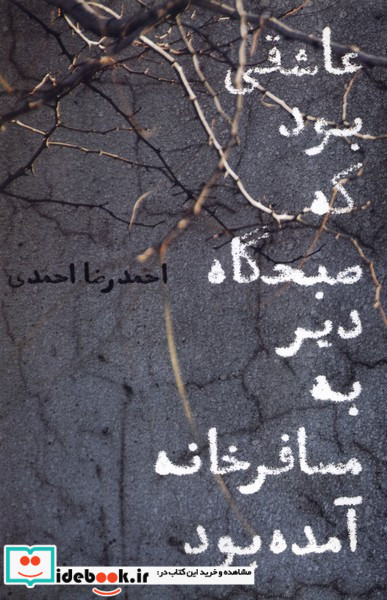 عاشقی
بود
که
صبحگاه
دیر
به
مسافرخانه
آمده بود
احمدرضا احمدی
مشاهده و خرید این کتاب در:
idebook.ir